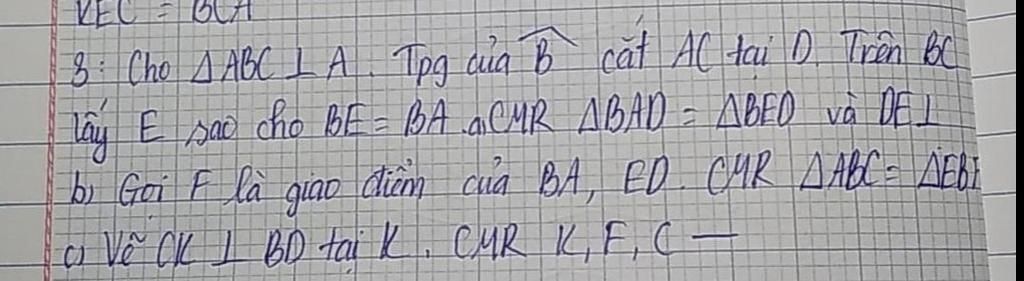 KEC = BCA
3: Cho ΔABC ⊥ A. Tpg của B̂ cắt AC tại D. Trên BC
lấy E sao cho BE = BA a, CMR ΔBAD = ΔBED và DE⊥
b) Gọi F là giao điểm của BA, ED. CMR ΔABC = ΔEBF
c) Vẽ CK ⊥ BD tại K. CMR K, F, C —